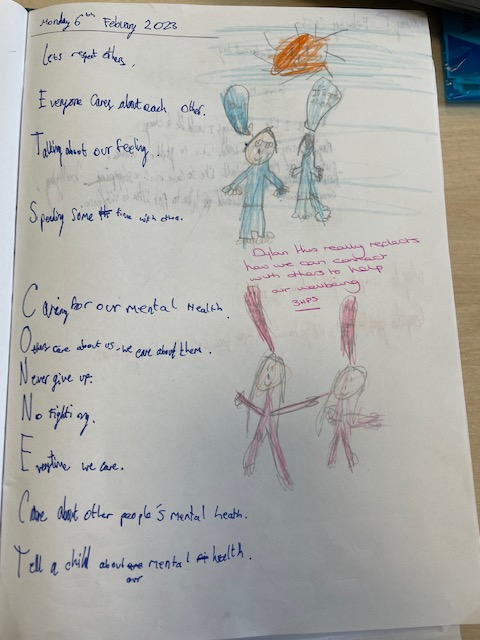 Monday 6th Febuary 2023
Lets respet others,
Everyone Cares about each other.
Talking about our feeling..
Spending some time with others.
Dylan this really reflects
how we can connect
with others to help
our wellbeing
3HPS
Caring for our mental Health.
Others care about us, we care about them.
Never give up.
No fighting.
Everytime we care.
Care about other people's mental heath.
Tell a child about our mental health.